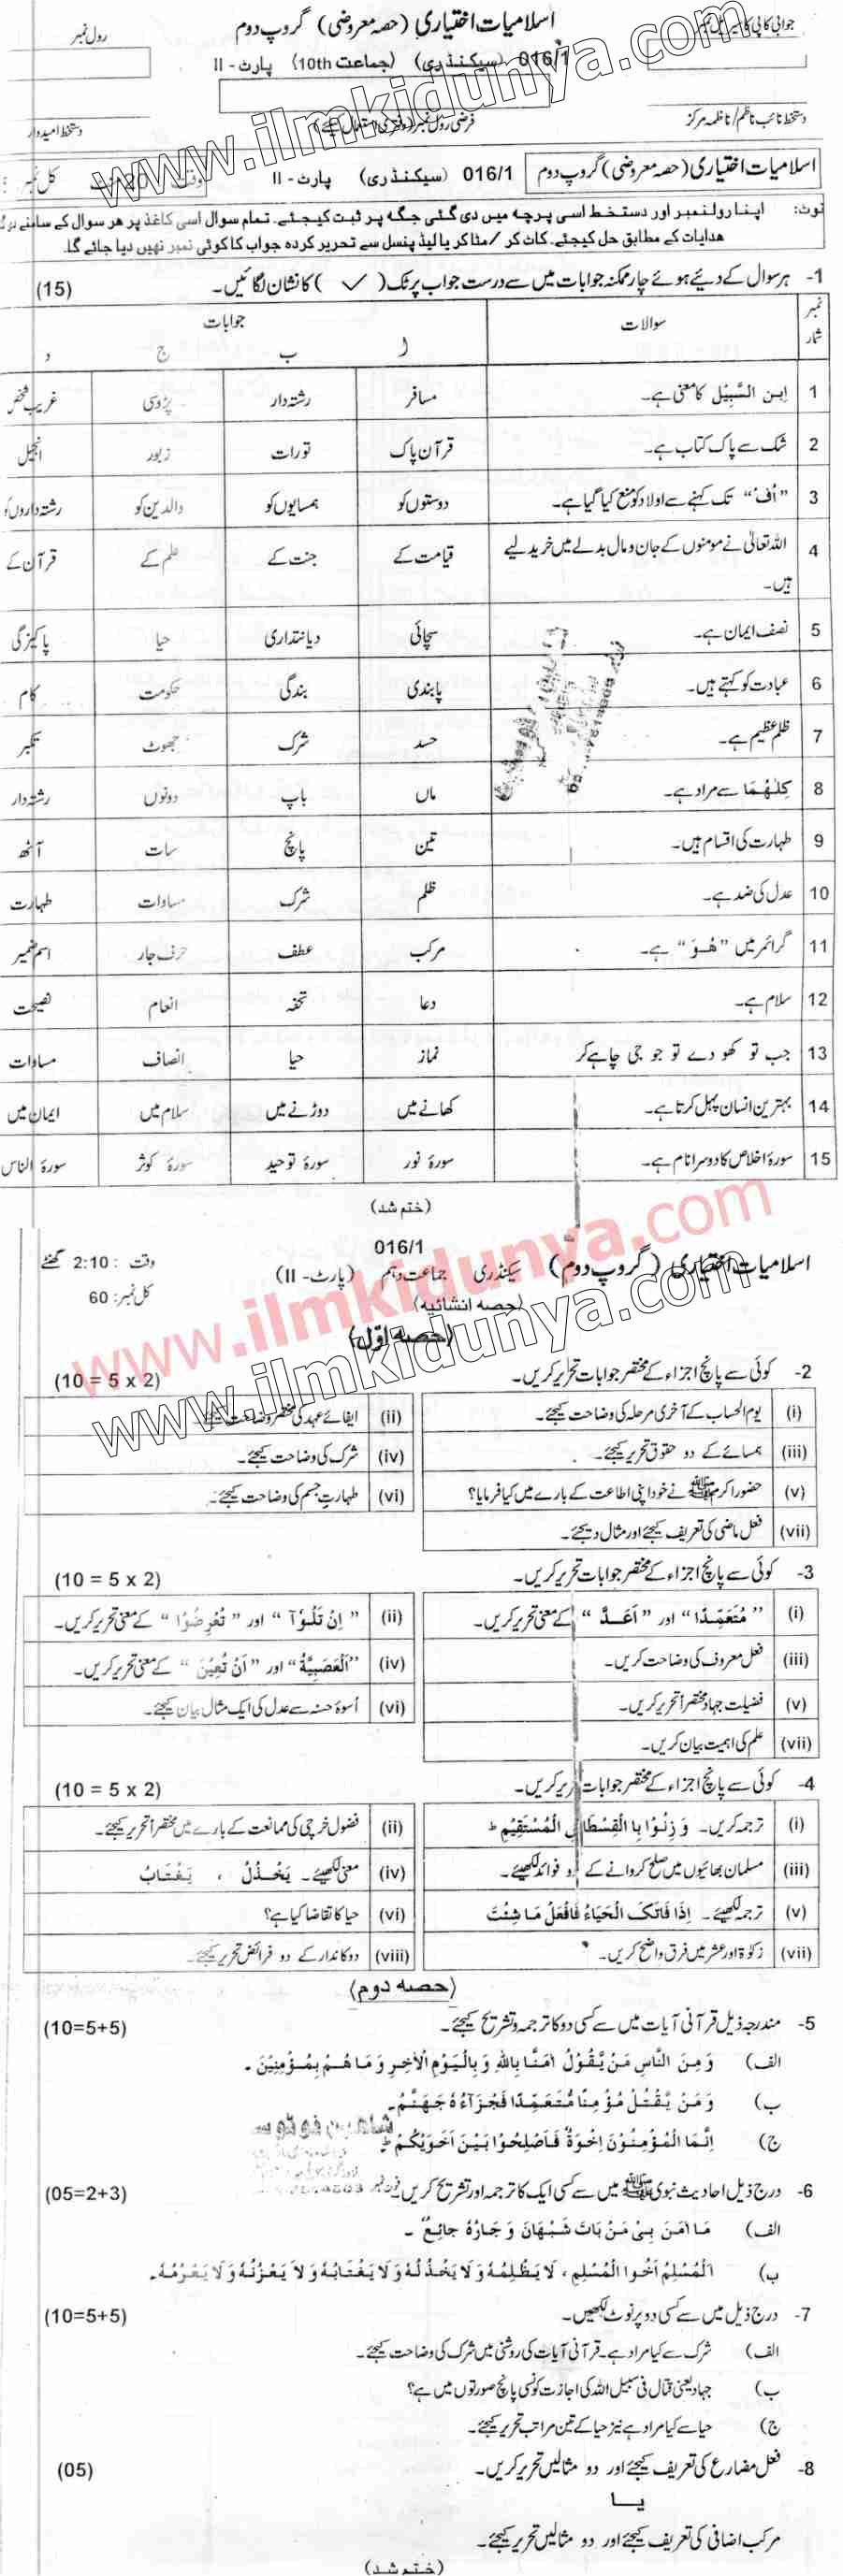 اسلامیات اختیاری (حصہ معروضی) گروپ دوم
رول نمبر
016/1 (سیکنڈری) (جماعت 10th) پارٹ - II
فرضی رول نمبر (دفتری استعمال کیلئے)
دستخط نائب ناظم/ناظمہ مرکز
دستخط امیدوار
www.ilmkidunya.com
اسلامیات اختیاری (حصہ معروضی) گروپ دوم 016/1 (سیکنڈری) پارٹ - II وقت 20 منٹ کل نمبر :
نوٹ: اپنا رولنمبر اور دستخط اسی پرچہ میں دی گئی جگہ پر ثبت کیجئے۔ تمام سوال اسی کاغذ پر ہر سوال کے سامنے
ہدایات کے مطابق حل کیجئے۔ کاٹ کر / مٹا کر یا لیڈ پنسل سے تحریر کردہ جواب کا کوئی نمبر نہیں دیا جائے گا۔
1- ہر سوال کے دیئے ہوئے چار ممکنہ جوابات میں سے درست جواب پر ٹک (✓) کا نشان لگائیں۔ (15)
نمبر شمار سوالات جوابات
ا ب ج د
1 اِبن السَّبِیْل کا معنی ہے۔ مسافر رشتہ دار پڑوسی غریب شخص
2 شک سے پاک کتاب ہے۔ قرآن پاک تورات زبور انجیل
3 "اُف" تک کہنے سے اولاد کو منع کیا گیا ہے۔ دوستوں کو ہمسایوں کو والدین کو رشتہ داروں کو
4 اللہ تعالیٰ نے مومنوں کے جان و مال بدلے میں خرید لیے ہیں۔ قیامت کے جنت کے علم کے قرآن کے
5 نصف ایمان ہے۔ سچائی دیانتداری حیا پاکیزگی
6 عبادت کو کہتے ہیں۔ پابندی بندگی حکومت کام
7 ظلم عظیم ہے۔ حسد شرک جھوٹ تکبر
8 کِلٰھُمَا سے مراد ہے۔ ماں باپ دونوں رشتہ دار
9 طہارت کی اقسام ہیں۔ تین پانچ سات آٹھ
10 عدل کی ضد ہے۔ ظلم شرک مساوات طہارت
11 گرائمر میں "ھُوَ" ہے۔ مرکب عطف حرف جار اسم ضمیر
12 سلام ہے۔ دعا تحفہ انعام نصیحت
13 جب تو کھو دے تو جو جی چاہے کر نماز حیا انصاف مساوات
14 بہترین انسان پہل کرتا ہے۔ کھانے میں دوڑنے میں سلام میں ایمان میں
15 سورۂ اخلاص کا دوسرا نام ہے۔ سورۂ نور سورۂ توحید سورۂ کوثر سورۂ الناس
(ختم شد)
www.ilmkidunya.com
016/1
اسلامیات اختیاری (گروپ دوم) سیکنڈری جماعت دہم (پارٹ - II) وقت : 2:10 گھنٹے
(حصہ انشائیہ) کل نمبر: 60
www.ilmkidunya.com
(حصہ اوّل)
2- کوئی سے پانچ اجزاء کے مختصر جوابات تحریر کریں۔ (10 = 5 x 2)
(i) یوم الحساب کے آخری مرحلہ کی وضاحت کیجئے۔ (ii) ایفائے عہد کی مختصر وضاحت کیجئے۔
(iii) ہمسائے کے دو حقوق تحریر کیجئے۔ (iv) شرک کی وضاحت کیجئے۔
(v) حضور اکرم ﷺ نے خود اپنی اطاعت کے بارے میں کیا فرمایا؟ (vi) طہارتِ جسم کی وضاحت کیجئے۔
(vii) فعل ماضی کی تعریف کیجئے اور مثال دیجئے۔
3- کوئی سے پانچ اجزاء کے مختصر جوابات تحریر کریں۔ (10 = 5 x 2)
(i) "مُتَعَمِّدًا" اور "اَعَدَّ" کے معنی تحریر کریں۔ (ii) "اِنْ تَلْوٗٓا" اور "تُعْرِضُوْا" کے معنی تحریر کریں۔
(iii) فعل معروف کی وضاحت کریں۔ (iv) "اَلْعَصَبِیَّةُ" اور "اَنْ تُعِیْنَ" کے معنی تحریر کریں۔
(v) فضیلت جہاد مختصراً تحریر کریں۔ (vi) اُسوۂ حسنہ سے عدل کی ایک مثال بیان کیجئے۔
(vii) علم کی اہمیت بیان کریں۔
4- کوئی سے پانچ اجزاء کے مختصر جوابات تحریر کریں۔ (10 = 5 x 2)
(i) ترجمہ کریں۔ وَ زِنُوْا بِا لْقِسْطَاسِ الْمُسْتَقِیْمِ ط (ii) فضول خرچی کی ممانعت کے بارے میں مختصراً تحریر کیجئے۔
(iii) مسلمان بھائیوں میں صلح کروانے کے دو فوائد لکھیئے۔ (iv) معنی لکھیئے۔ یَخْذُلُ ، یَغْتَابُ
(v) ترجمہ لکھیئے۔ اِذَا فَاتَکَ الْحَیَاءُ فَافْعَلْ مَا شِئْتَ (vi) حیا کا تقاضا کیا ہے؟
(vii) زکوٰۃ اور عشر میں فرق واضح کریں۔ (viii) دوکاندار کے دو فرائض تحریر کیجئے۔
(حصہ دوم)
5- مندرجہ ذیل قرآنی آیات میں سے کسی دو کا ترجمہ و تشریح کیجئے۔ (10=5+5)
الف) وَ مِنَ النَّاسِ مَنْ یَّقُوْلُ اٰمَنَّا بِاللهِ وَ بِالْیَوْمِ الْاٰخِرِ وَ مَا هُمْ بِمُؤْمِنِیْنَ ۔
ب) وَ مَنْ یَّقْتُلْ مُؤْمِنًا مُّتَعَمِّدًا فَجَزَآءُهٗ جَهَنَّمُ۔
ج) اِنَّمَا الْمُؤْمِنُوْنَ اِخْوَةٌ فَاَصْلِحُوْا بَیْنَ اَخَوَیْکُمْ ط
6- درج ذیل احادیث نبوی ﷺ میں سے کسی ایک کا ترجمہ اور تشریح کریں۔ (05=2+3)
الف) مَا اٰمَنَ بِیْ مَنْ بَاتَ شَبْهَانَ وَ جَارُهٗ جَائِعٌ ۔
ب) اَلْمُسْلِمُ اَخُوا الْمُسْلِمِ، لَا یَظْلِمُهٗ وَلَا یَخْذُلُهٗ وَلَا یَغْتَابُهٗ وَلَا یَحْزُنُهٗ وَلَا یَحْرِمُهٗ۔
7- درج ذیل میں سے کسی دو پر نوٹ لکھیں۔ (10=5+5)
الف) شرک سے کیا مراد ہے۔ قرآنی آیات کی روشنی میں شرک کی وضاحت کیجئے۔
ب) جہاد یعنی قتال فی سبیل اللہ کی اجازت کونسی پانچ صورتوں میں ہے؟
ج) حیا سے کیا مراد ہے نیز حیا کے تین مراتب تحریر کیجئے۔
8- فعل مضارع کی تعریف کیجئے اور دو مثالیں تحریر کریں۔ (05)
یا
مرکب اضافی کی تعریف کیجئے اور دو مثالیں تحریر کیجئے۔
(ختم شد)